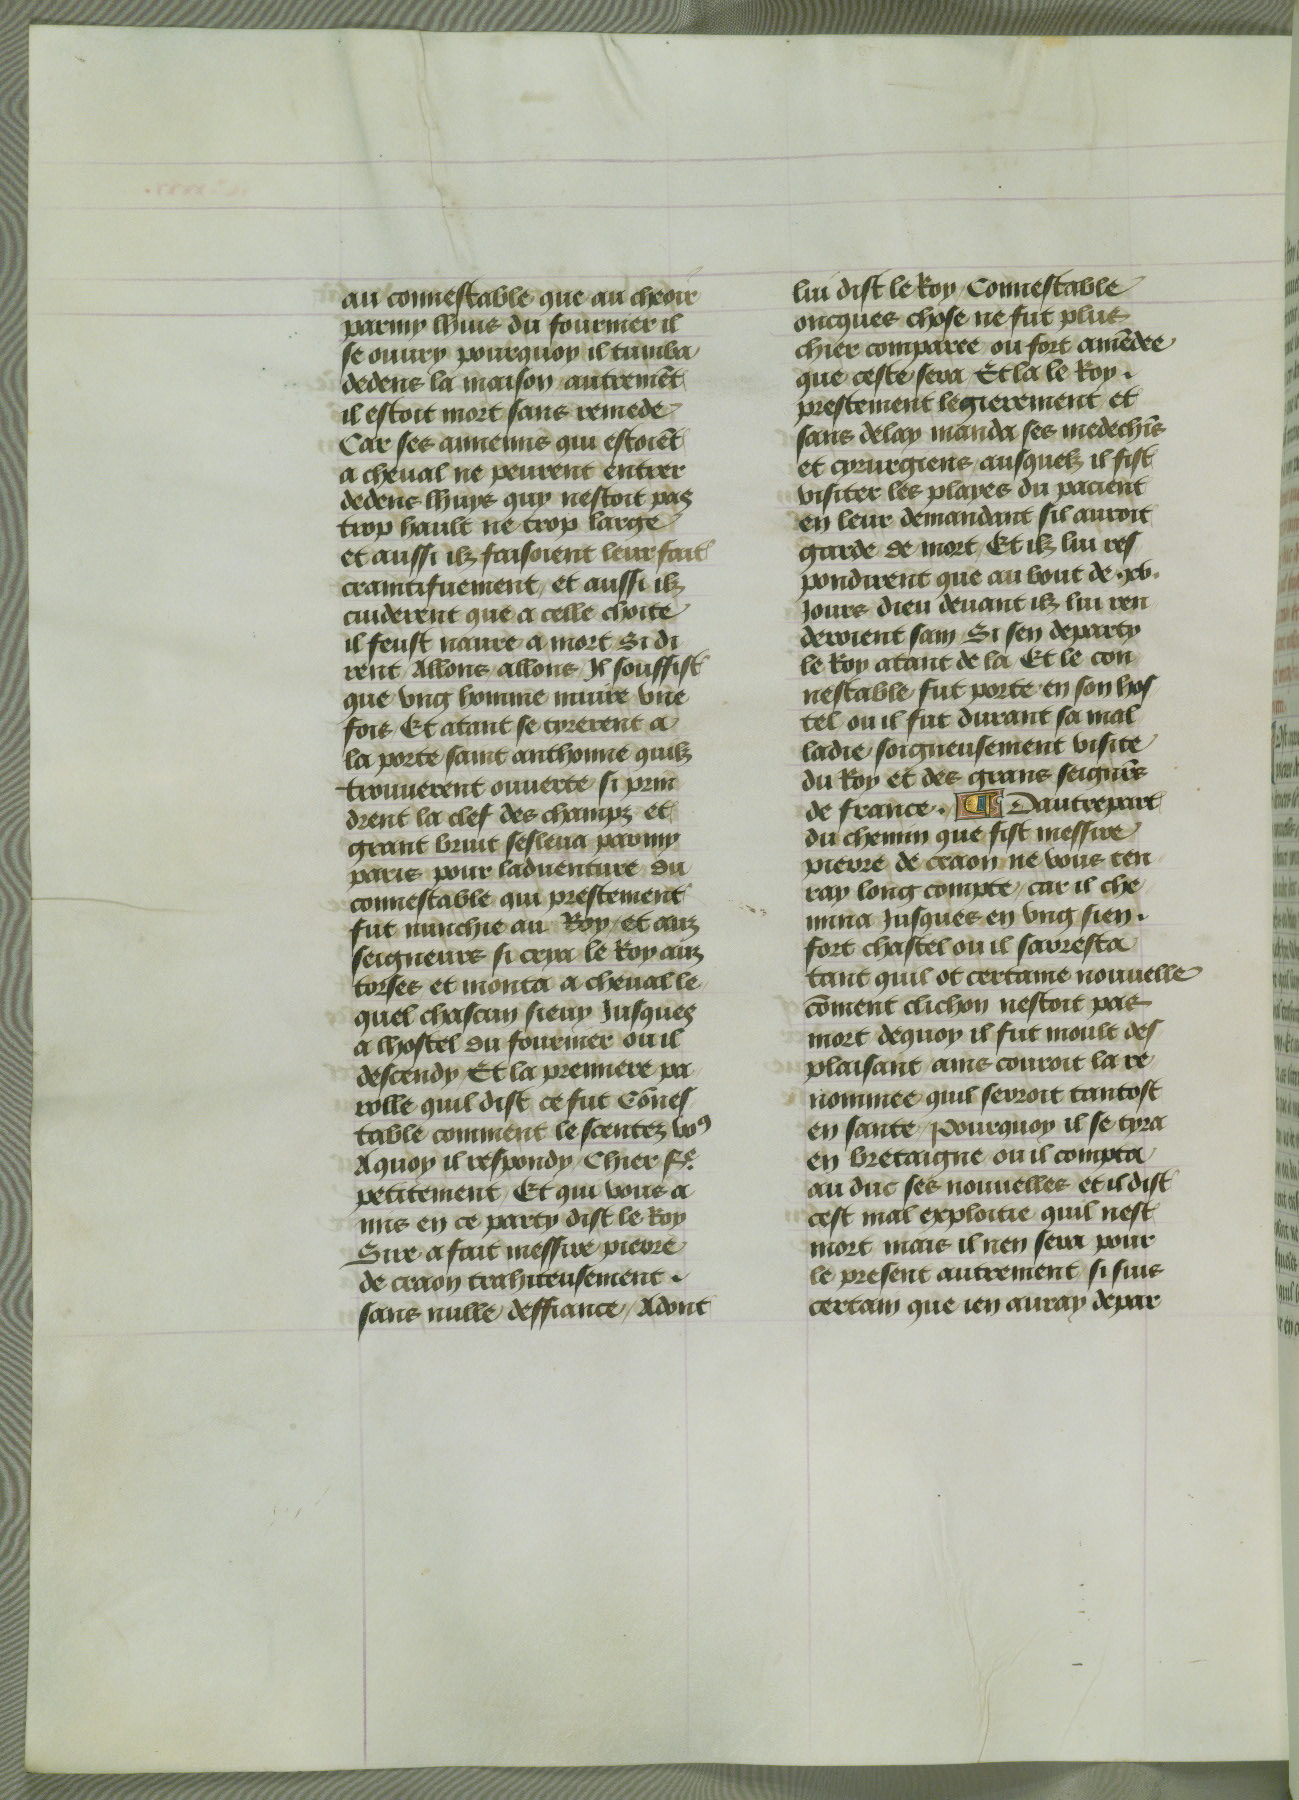 au connestable que au cheoir
parmy lhuis du fournier il
se ouury pourquoy il tumba
dedens la maison autremēt
il estoit mort sans remede
Car ses annemis qui estoiēt
a cheual ne peurent entrer
dedens lhuys quy nestoit pas
trop hault ne trop large
et aussi ilz faisoient leur fait
cramtifuement / et aussi ilz
cuiderent que a celle choite
il feust naure a mort Si di
rent Allons allons Il souffist
que vng homme muire vne
fois Et atant se tyrerent a
la porte saint anthonne quilz
trouuerent ouuerte si prin
drent la clef des champz et
grant bruit sesleua parmy
paris pour laduenture du
connestable qui prestement
fut nunchie au Roy / et aux
seigneurs si crya le Roy aux
torses et monta a cheual le
quel chascun sieuy Jusques
a lhostel du fournier ou il
descendy Et la premiere pa
rolle quil dist ce fut Cōnes
table comment le scentez voꝰ
Aquoy il respondy / Chier sr̄e
petitement / Et qui vous a
mis en ce party dist le Roy
Sire a fait messire pierre
de craon trahiteusement .
sans nulle deffiance / Adont
lui dist le Roy / Connestable
oncques chose ne fut plus
chier comparee ou fort amēdee
que ceste sera Et la le Roy .
prestement legierement et
sans delay manda ses medechīs
et cyrurgiens ausquelz il fist
visiter les playes du pacient
en leur demandant sil auroit
garde de mort Et ilz lui res
pondirent que au bout de .xv.
Jours dieu deuant ilz lui ren
deroient sain Si sen departy
le Roy atant de la Et le con
nestable fut porte en son hos
tel ou il fut durant sa mal
ladie soigneusement visite
du Roy et des grans seignr̄s
de france . ¶ Dautrepart
du chemin que fist messire
pierre de craon ne vous ten
ray long compte / car il che
mina Jusques en vng sien .
fort chastel ou il sarresta
tant quil ot certaine nouuelle
cōment clichon nestoit pas
mort dequoy il fut moult des
plaisant ains couroit la re
nommee quil seroit tantost
en sante / Pourquoy il se tyra
en bretaigne ou il compta
au duc ses nouuelles et il dist
cest mal exploitie quil nest
mort mais il nen sera pour
le present autrement si suis
certain que ien auray depar